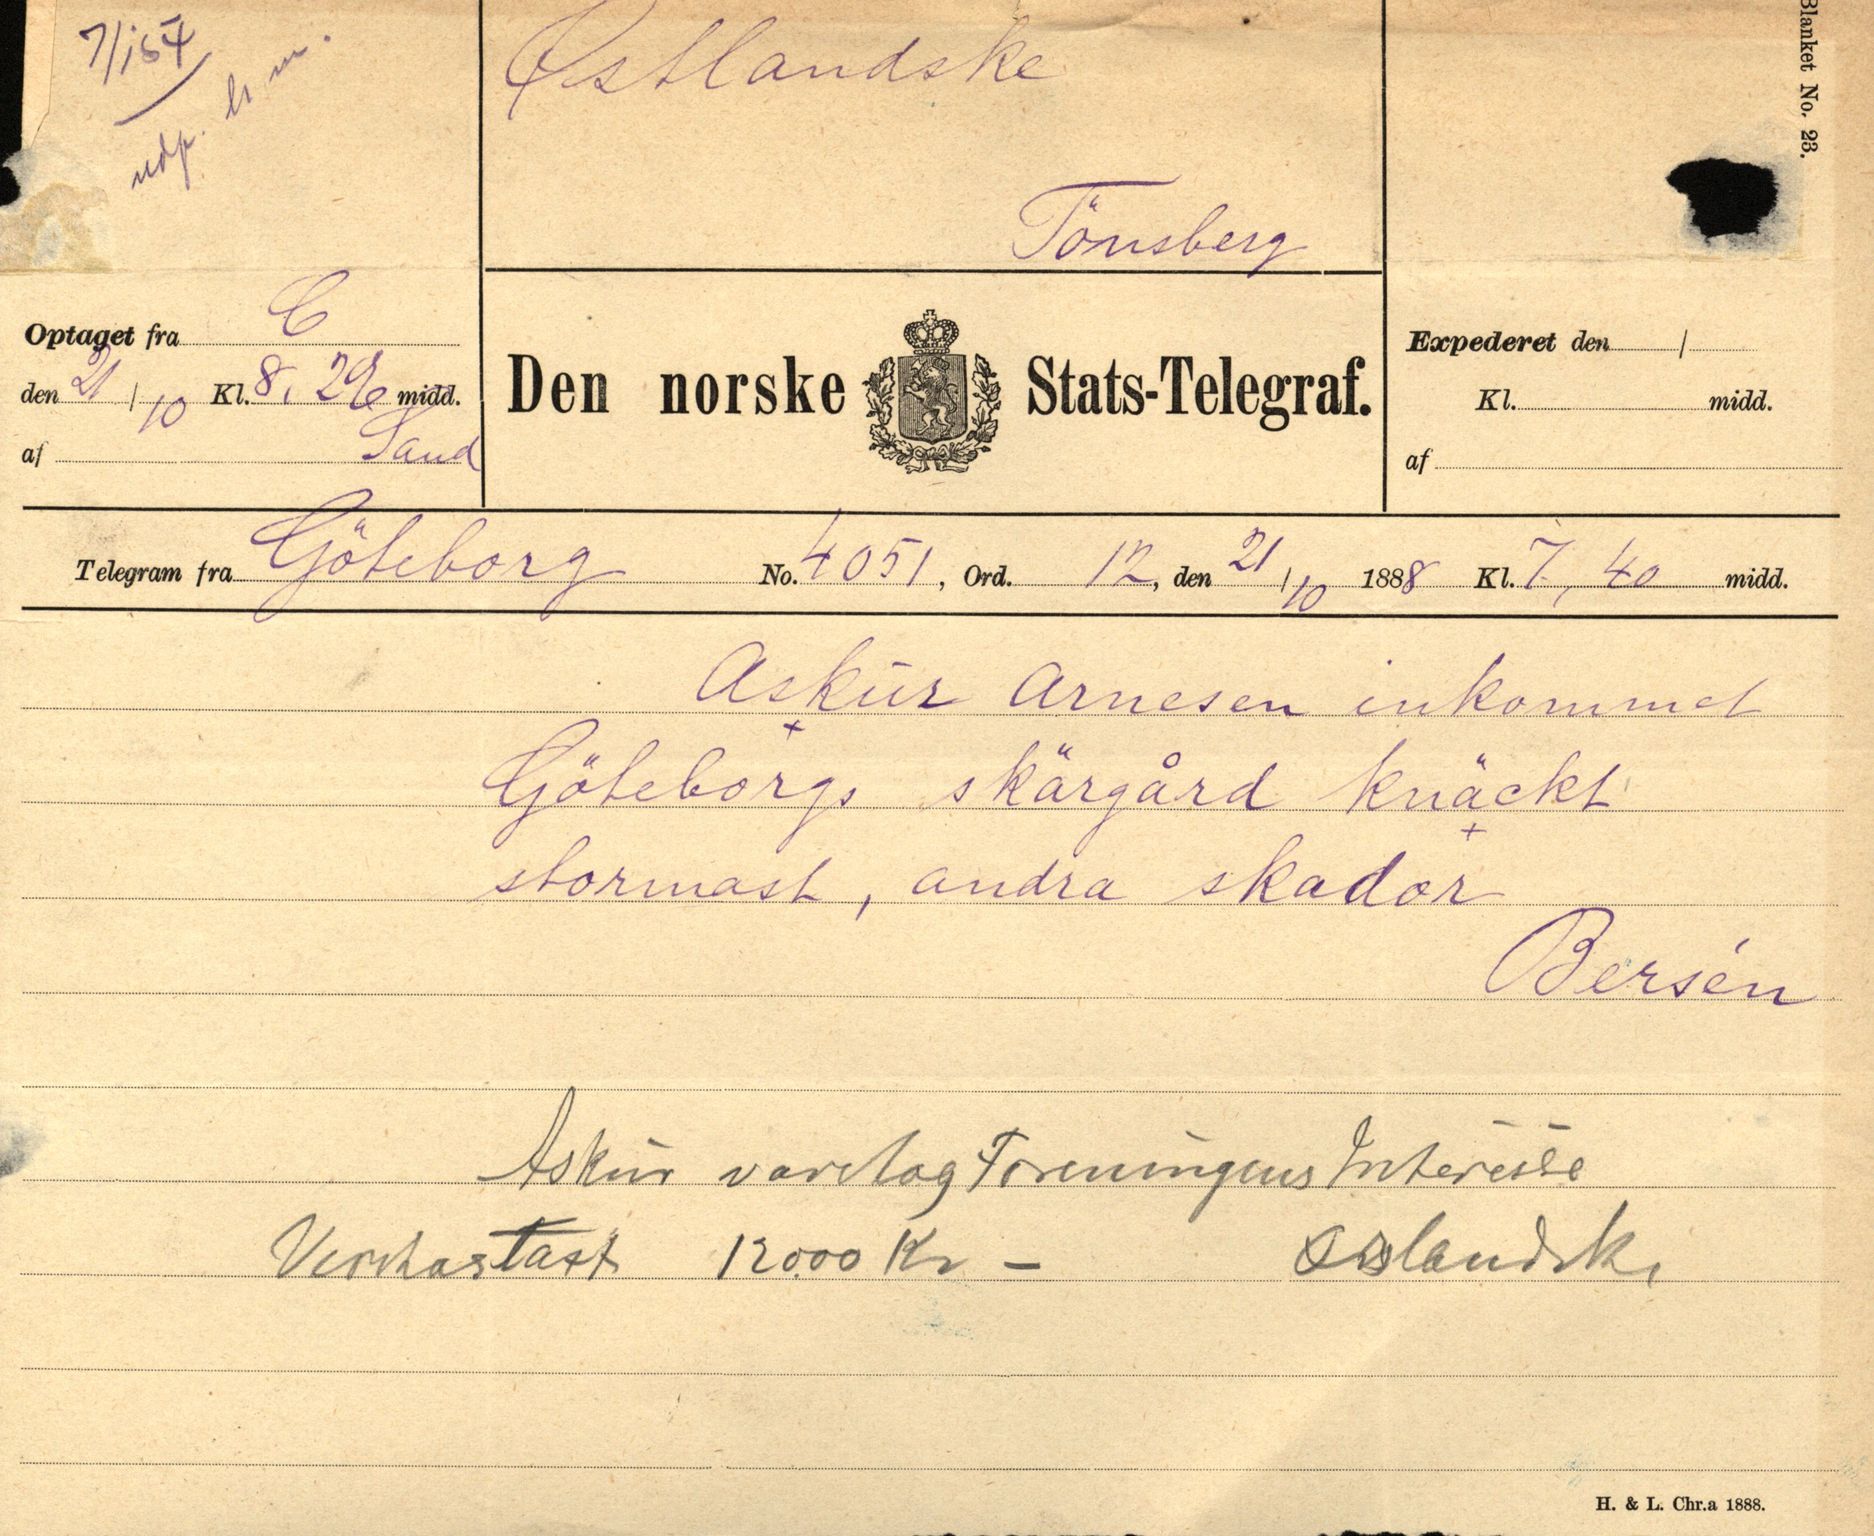 7/154
udp.
Østlandske
Tönsberg
Blanket No. 23.
Optaget fra C
den 21/10 Kl. 8. 29 E midd.
af Sand
Den norske Stats-Telegraf.
Expederet den /
Kl. midd.
af
Telegram fra Göteborg No. 4051, Ord. 12, den 21/10 1888 Kl. 7, 40 midd.
Askur Arnesen inkommet
Göteborgs skärgård knäckt
stormast, andra skador
Bersén
Askur varetag Foreningens Interesse
12000 Kr — Østlandske
H. & L. Chr.a 1888.